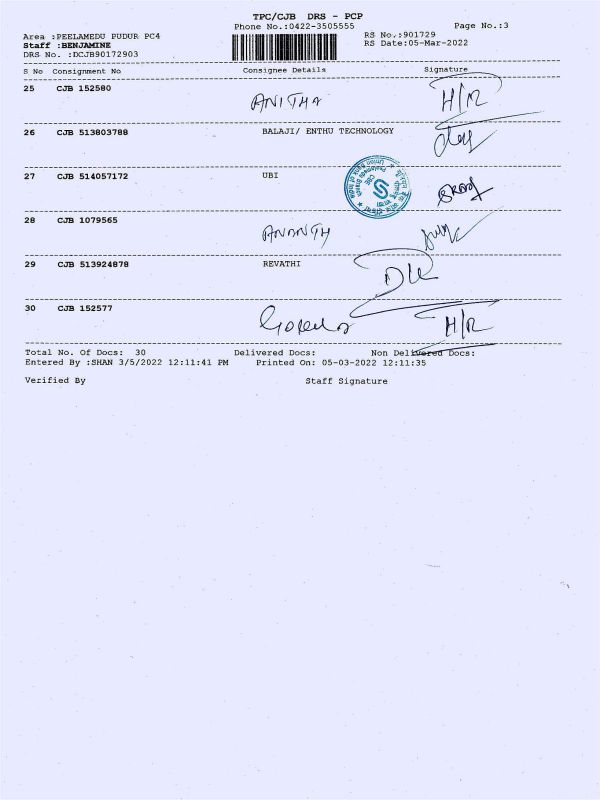 TPC/CJB DRS - PCP
Phone No.:0422-3505555 Page No.:3
Area :PEELAMEDU PUDUR PC4 RS No.:901729
Staff :BENJAMINE RS Date:05-Mar-2022
DRS No. :DCJB90172903
S No Consignment No Consignee Details Signature
25 CJB 152580 ANITHA H/R
26 CJB 513803788 BALAJI/ ENTHU TECHNOLOGY
27 CJB 514057172 UBI
28 CJB 1079565 ANANTH
29 CJB 513924878 REVATHI
30 CJB 152577 H/R
Total No. Of Docs: 30 Delivered Docs: Non Delivered Docs:
Entered By :SHAN 3/5/2022 12:11:41 PM Printed On: 05-03-2022 12:11:35
Verified By Staff Signature